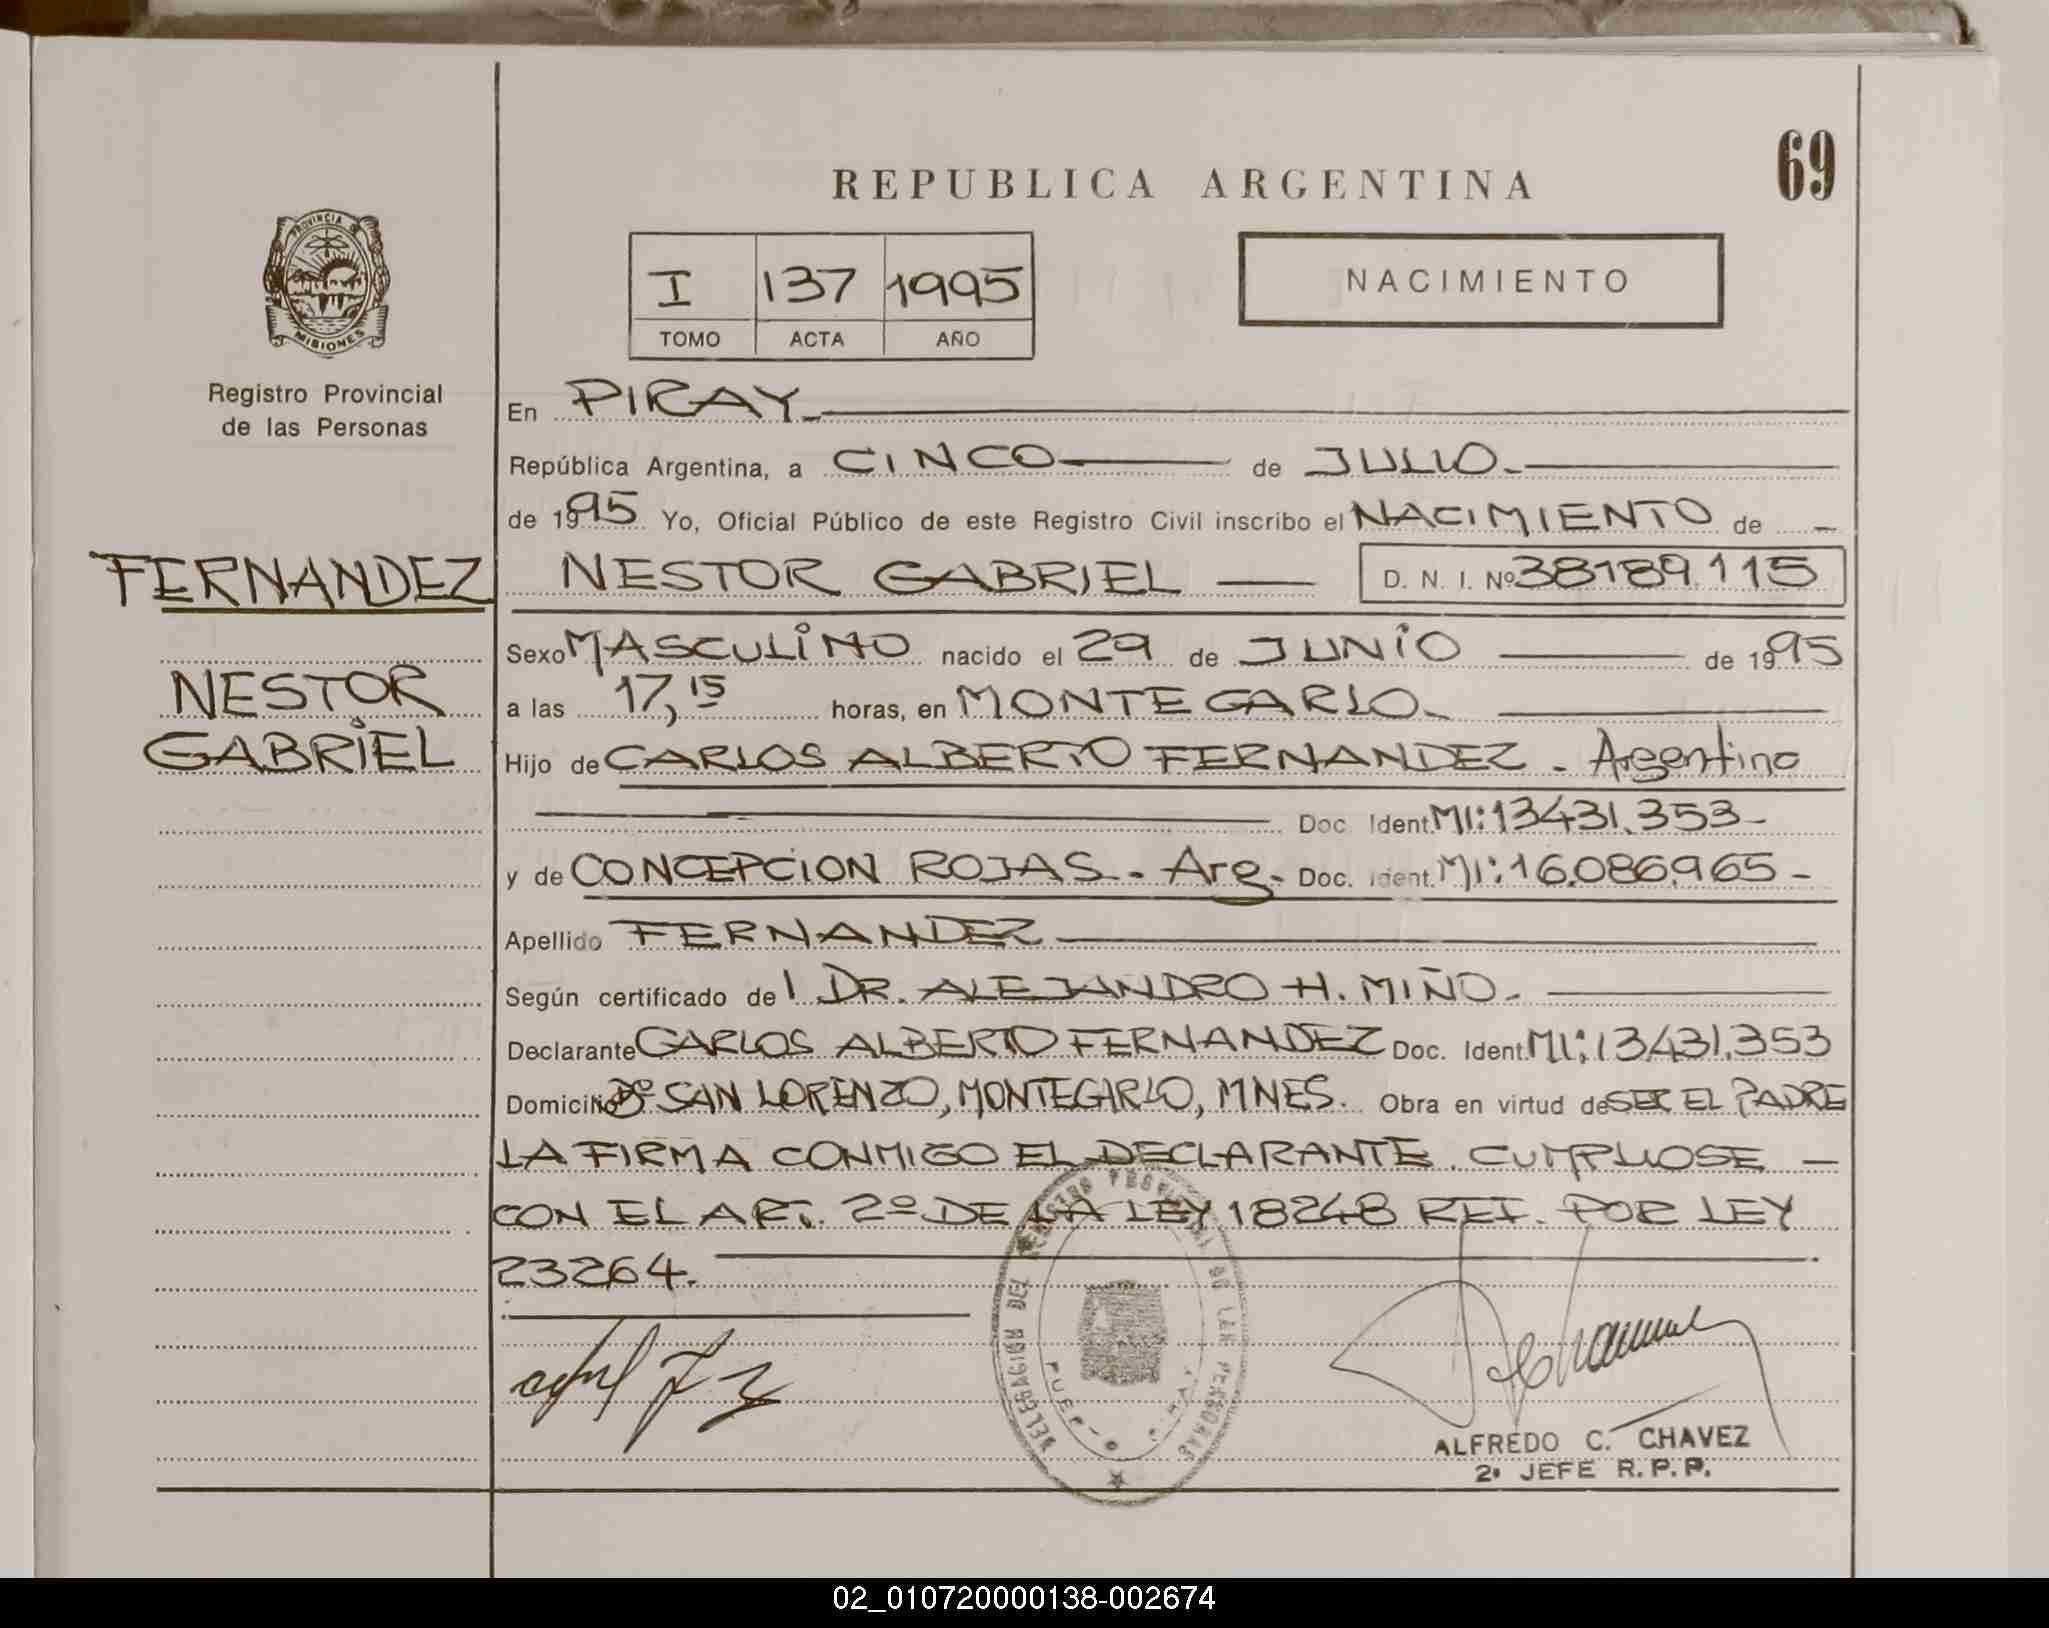 REPUBLICA ARGENTINA
69
PROVINCIA DE
MISIONES
Registro Provincial
de las Personas
I 137 1995
TOMO ACTA AÑO
NACIMIENTO
En PIRAY
República Argentina, a CINCO de JULIO.
de 1995 Yo, Oficial Público de este Registro Civil inscribo el NACIMIENTO de
FERNANDEZ
NESTOR GABRIEL D. N. I. Nº 38189.115
Sexo MASCULINO nacido el 29 de JUNIO de 1995
NESTOR
GABRIEL
a las 17,15 horas, en MONTECARLO.
Hijo de CARLOS ALBERTO FERNANDEZ. Argentino
Doc Ident. MI: 13431.353-
y de CONCEPCION ROJAS. Arg. Doc. Ident. MI: 16.086.965-
Apellido FERNANDEZ
Según certificado del DR. ALEJANDRO H. MIÑO.
Declarante CARLOS ALBERTO FERNANDEZ Doc. Ident. MI: 13431.353
Domicilio Bº SAN LORENZO, MONTECARLO, MNES. Obra en virtud de SER EL PADRE
LA FIRMA CONMIGO EL DECLARANTE. CUMPLIOSE -
CON EL ART. 2º DE LA LEY 18248 REF. POR LEY
23264.
DELEGACION DEL REGISTRO PROVINCIAL DE LAS PERSONAS
PUERTO PIRAY
ALFREDO C. CHAVEZ
2º JEFE R.P.P.
02_010720000138-002674